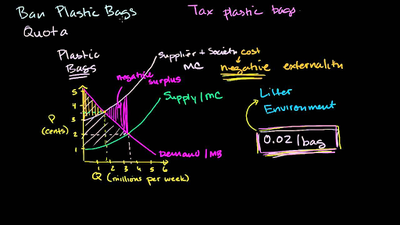 Ban Plastic Bags
Tax plastic bags
Quota
Plastic
Bags
Supplier + Society cost
MC
negative externality
negative
surplus
Supply/MC
Litter
Environment
0.02/bag
5
4
3
2
1
P
(cents)
1 2 3 4 5 6
Q (millions per week)
Demand/MB